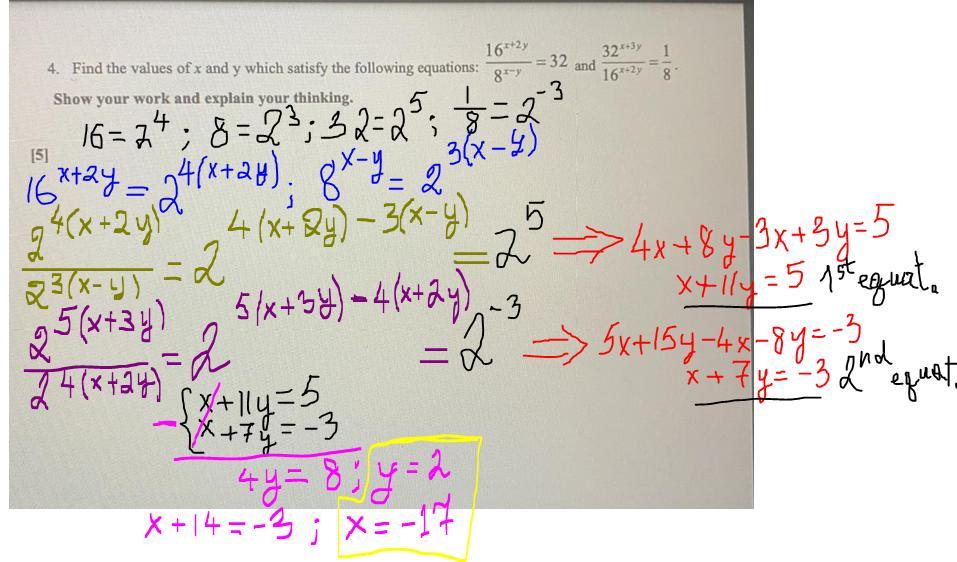 4. Find the values of x and y which satisfy the following equations: 16^(x+2y)/8^(x−y) = 32 and 32^(x+3y)/16^(x+2y) = 1/8.
Show your work and explain your thinking.
16 = 2^4 ; 8 = 2^3 ; 32 = 2^5 ; 1/8 = 2^-3
[5]
16^(x+2y) = 2^4(x+2y) ; 8^(x-y) = 2^3(x-y)
2^4(x+2y) / 2^3(x-y) = 2^4(x+2y)-3(x-y) = 2^5 ⟹ 4x+8y-3x+3y=5
x+11y=5 1st equat.
2^5(x+3y) / 2^4(x+2y) = 2^5(x+3y)-4(x+2y) = 2^-3 ⟹ 5x+15y-4x-8y=-3
x+7y=-3 2nd equat.
- { x+11y=5
x+7y=-3
4y=8; y=2
x+14=-3; x=-17